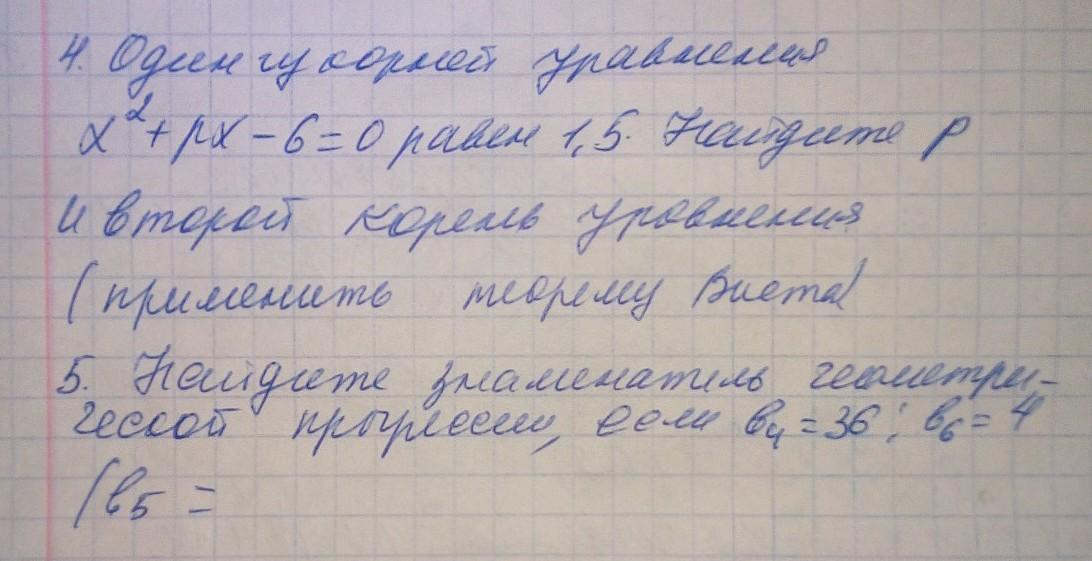 4. Один из корней уравнения
x² + px - 6 = 0 равен 1,5. Найдите p
и второй корень уровнения
(применить теорему Виета)
5. Найдите знаменатель геометри-
ческой прогрессии, если b₄ = 36; b₆ = 4
(b₅ =